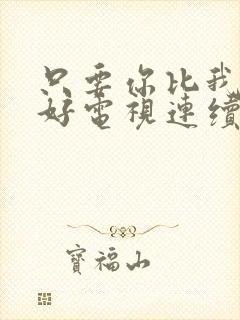 只要你比我
好電視連續
寶福山